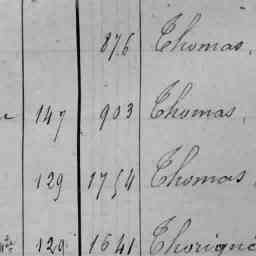 876 Thomas,
147 903 Thomas,
129 1754 Thomas
129 1641 Thorigné